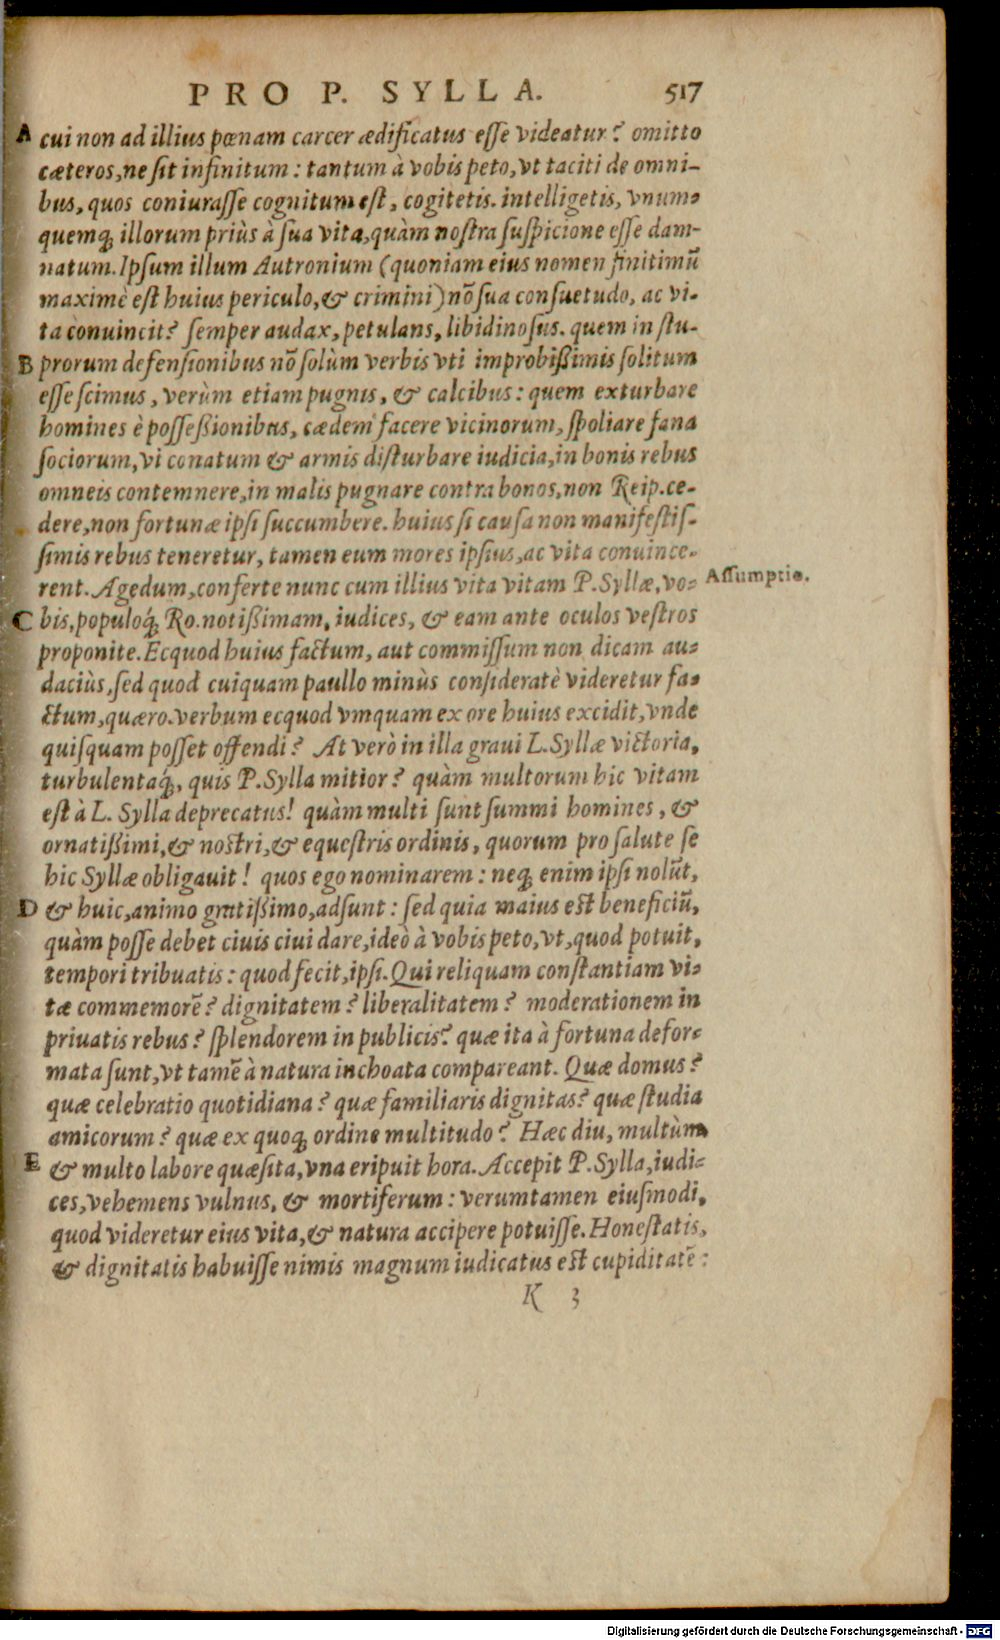 PRO P. SYLLA. 517
A cui non ad illius pœnam carcer ædificatus eſſe videatur? omitto
cæteros, ne ſit infinitum: tantum à vobis peto, vt taciti de omni-
bus, quos coniuraſſe cognitum eſt, cogitetis. intelligetis, vnum-
quemq́; illorum priùs à ſua vita, quàm noſtra ſuſpicione eſſe dam-
natum. Ipſum illum Autronium (quoniam eius nomen finitimũ
maximè eſt huius periculo, & crimini) nõ ſua conſuetudo, ac vi-
ta conuincit? ſemper audax, petulans, libidinoſus. quem in ſtu-
B prorum defenſionibus nõ ſolùm verbis vti improbißimis ſolitum
eſſe ſcimus, verùm etiam pugnis, & calcibus: quem exturbare
homines è poſſeßionibus, cædem facere vicinorum, ſpoliare fana
ſociorum, vi conatum & armis diſturbare iudicia, in bonis rebus
omneis contemnere, in malis pugnare contra bonos, non Reip. ce-
dere, non fortunæ ipſi ſuccumbere. huius ſi cauſa non manifeſtiſ-
ſimis rebus teneretur, tamen eum mores ipſius, ac vita conuince-
rent. Agedum, conferte nunc cum illius vita vitam P. Syllæ, vo- Aſſumptio.
C bis, populoq́; Ro. notißimam, iudices, & eam ante oculos veſtros
proponite. Ecquod huius factum, aut commiſſum non dicam au-
daciùs, ſed quod cuiquam paullo minùs conſideratè videretur fa-
ctum, quæro. verbum ecquod vmquam ex ore huius excidit, vnde
quiſquam poſſet offendi? At verò in illa graui L. Syllæ victoria,
turbulentaq́;, quis P. Sylla mitior? quàm multorum hic vitam
eſt à L. Sylla deprecatus! quàm multi ſunt ſummi homines, &
ornatißimi, & noſtri, & equeſtris ordinis, quorum pro ſalute ſe
hic Syllæ obligauit! quos ego nominarem: neq; enim ipſi nolũt,
D & huic, animo gratißimo, adſunt: ſed quia maius eſt beneficiũ,
quàm poſſe debet ciuis ciui dare, ideò à vobis peto, vt, quod potuit,
tempori tribuatis: quod fecit, ipſi. Qui reliquam conſtantiam vi-
tæ commemorẽ? dignitatem? liberalitatem? moderationem in
priuatis rebus? ſplendorem in publicis? quæ ita à fortuna defor-
mata ſunt, vt tamẽ à natura inchoata compareant. Quæ domus?
quæ celebratio quotidiana? quæ familiaris dignitas? quæ ſtudia
amicorum? quæ ex quoq; ordine multitudo? Hæc diu, multùm
E & multo labore quæſita, vna eripuit hora. Accepit P. Sylla, iudi-
ces, vehemens vulnus, & mortiferum: verumtamen eiuſmodi,
quod videretur eius vita, & natura accipere potuiſſe. Honeſtatis,
& dignitatis habuiſſe nimis magnum iudicatus eſt cupiditatẽ:
K 3
Digitalisierung gefördert durch die Deutsche Forschungsgemeinschaft - DFG